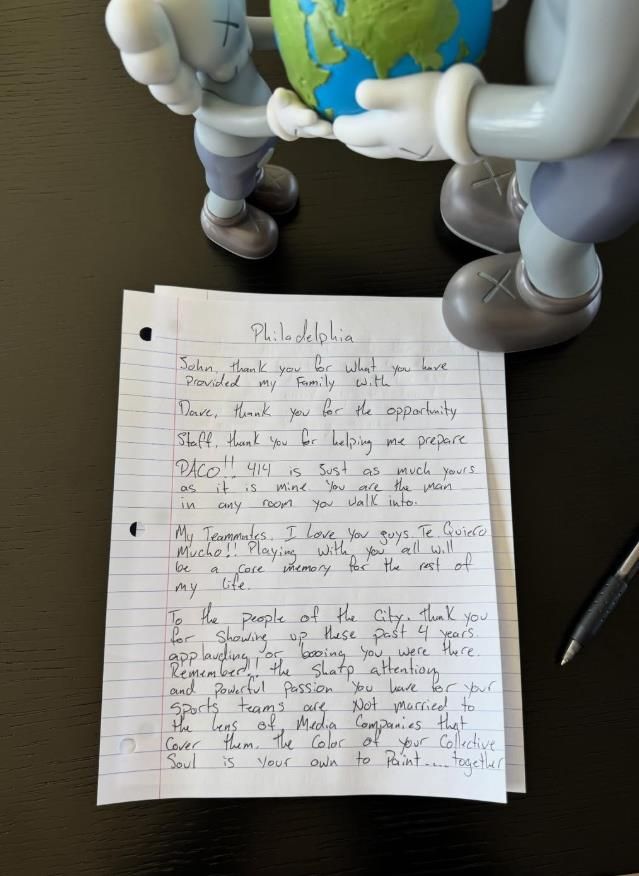 Philadelphia
John, thank you for what you have
Provided my Family with
Dave, thank you for the opportunity
Staff, thank you for helping me prepare
PACO!! 414 is Just as much yours
as it is mine You are the man
in any room you walk into.
My Teammates, I Love You guys Te Quiero
Mucho!! Playing with you all will
be a core memory for the rest of
my life.
To the people of the City, thank you
for Showing up these past 4 years.
applauding or booing you were there.
Remember!! the Sharp attention
and powerful passion You have for your
sports teams are Not married to
the lens of Media Companies that
Cover them. The Color of your Collective
Soul is your own to Paint.... together